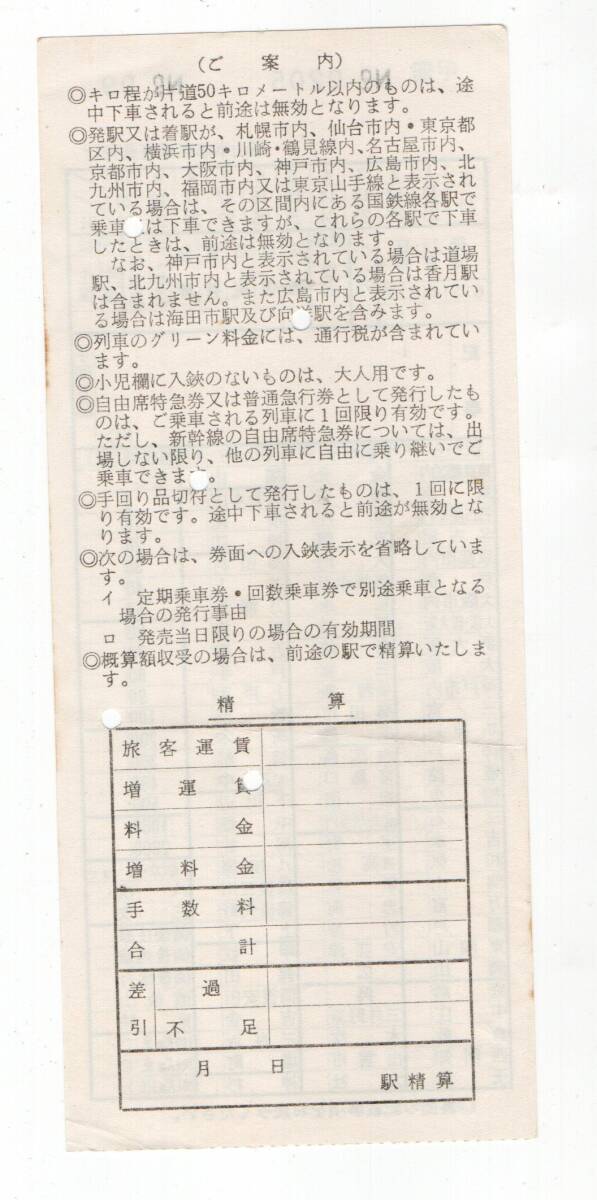 (ご案内)
◎キロ程が片道50キロメートル以内のものは、途
中下車されると前途は無効となります。
◎発駅又は着駅が、札幌市内、仙台市内・東京都
区内、横浜市内・川崎・鶴見線内、名古屋市内、
京都市内、大阪市内、神戸市内、広島市内、北
九州市内、福岡市内又は東京山手線と表示され
ている場合は、その区間内にある国鉄線各駅で
乗車は下車できますが、これらの各駅で下車
したときは、前途は無効となります。
なお、神戸市内と表示されている場合は道場
駅、北九州市内と表示されている場合は香月駅
は含まれません。また広島市内と表示されてい
る場合は海田市駅及び向洋駅を含みます。
◎列車のグリーン料金には、通行税が含まれてい
ます。
◎小児欄に入鋏のないものは、大人用です。
◎自由席特急券又は普通急行券として発行したも
のは、ご乗車される列車に1回限り有効です。
ただし、新幹線の自由席特急券については、出
場しない限り、他の列車に自由に乗り継いでご
乗車できます。
◎手回り品切符として発行したものは、1回に限
り有効です。途中下車されると前途が無効とな
ります。
◎次の場合は、券面への入鋏表示を省略していま
す。
イ 定期乗車券・回数乗車券で別途乗車となる
場合の発行事由
ロ 発売当日限りの場合の有効期間
◎概算額収受の場合は、前途の駅で精算いたしま
す。
精算
旅客運賃
増運賃
料金
増料金
手数料
合計
差引
過
不足
月 日
駅精算